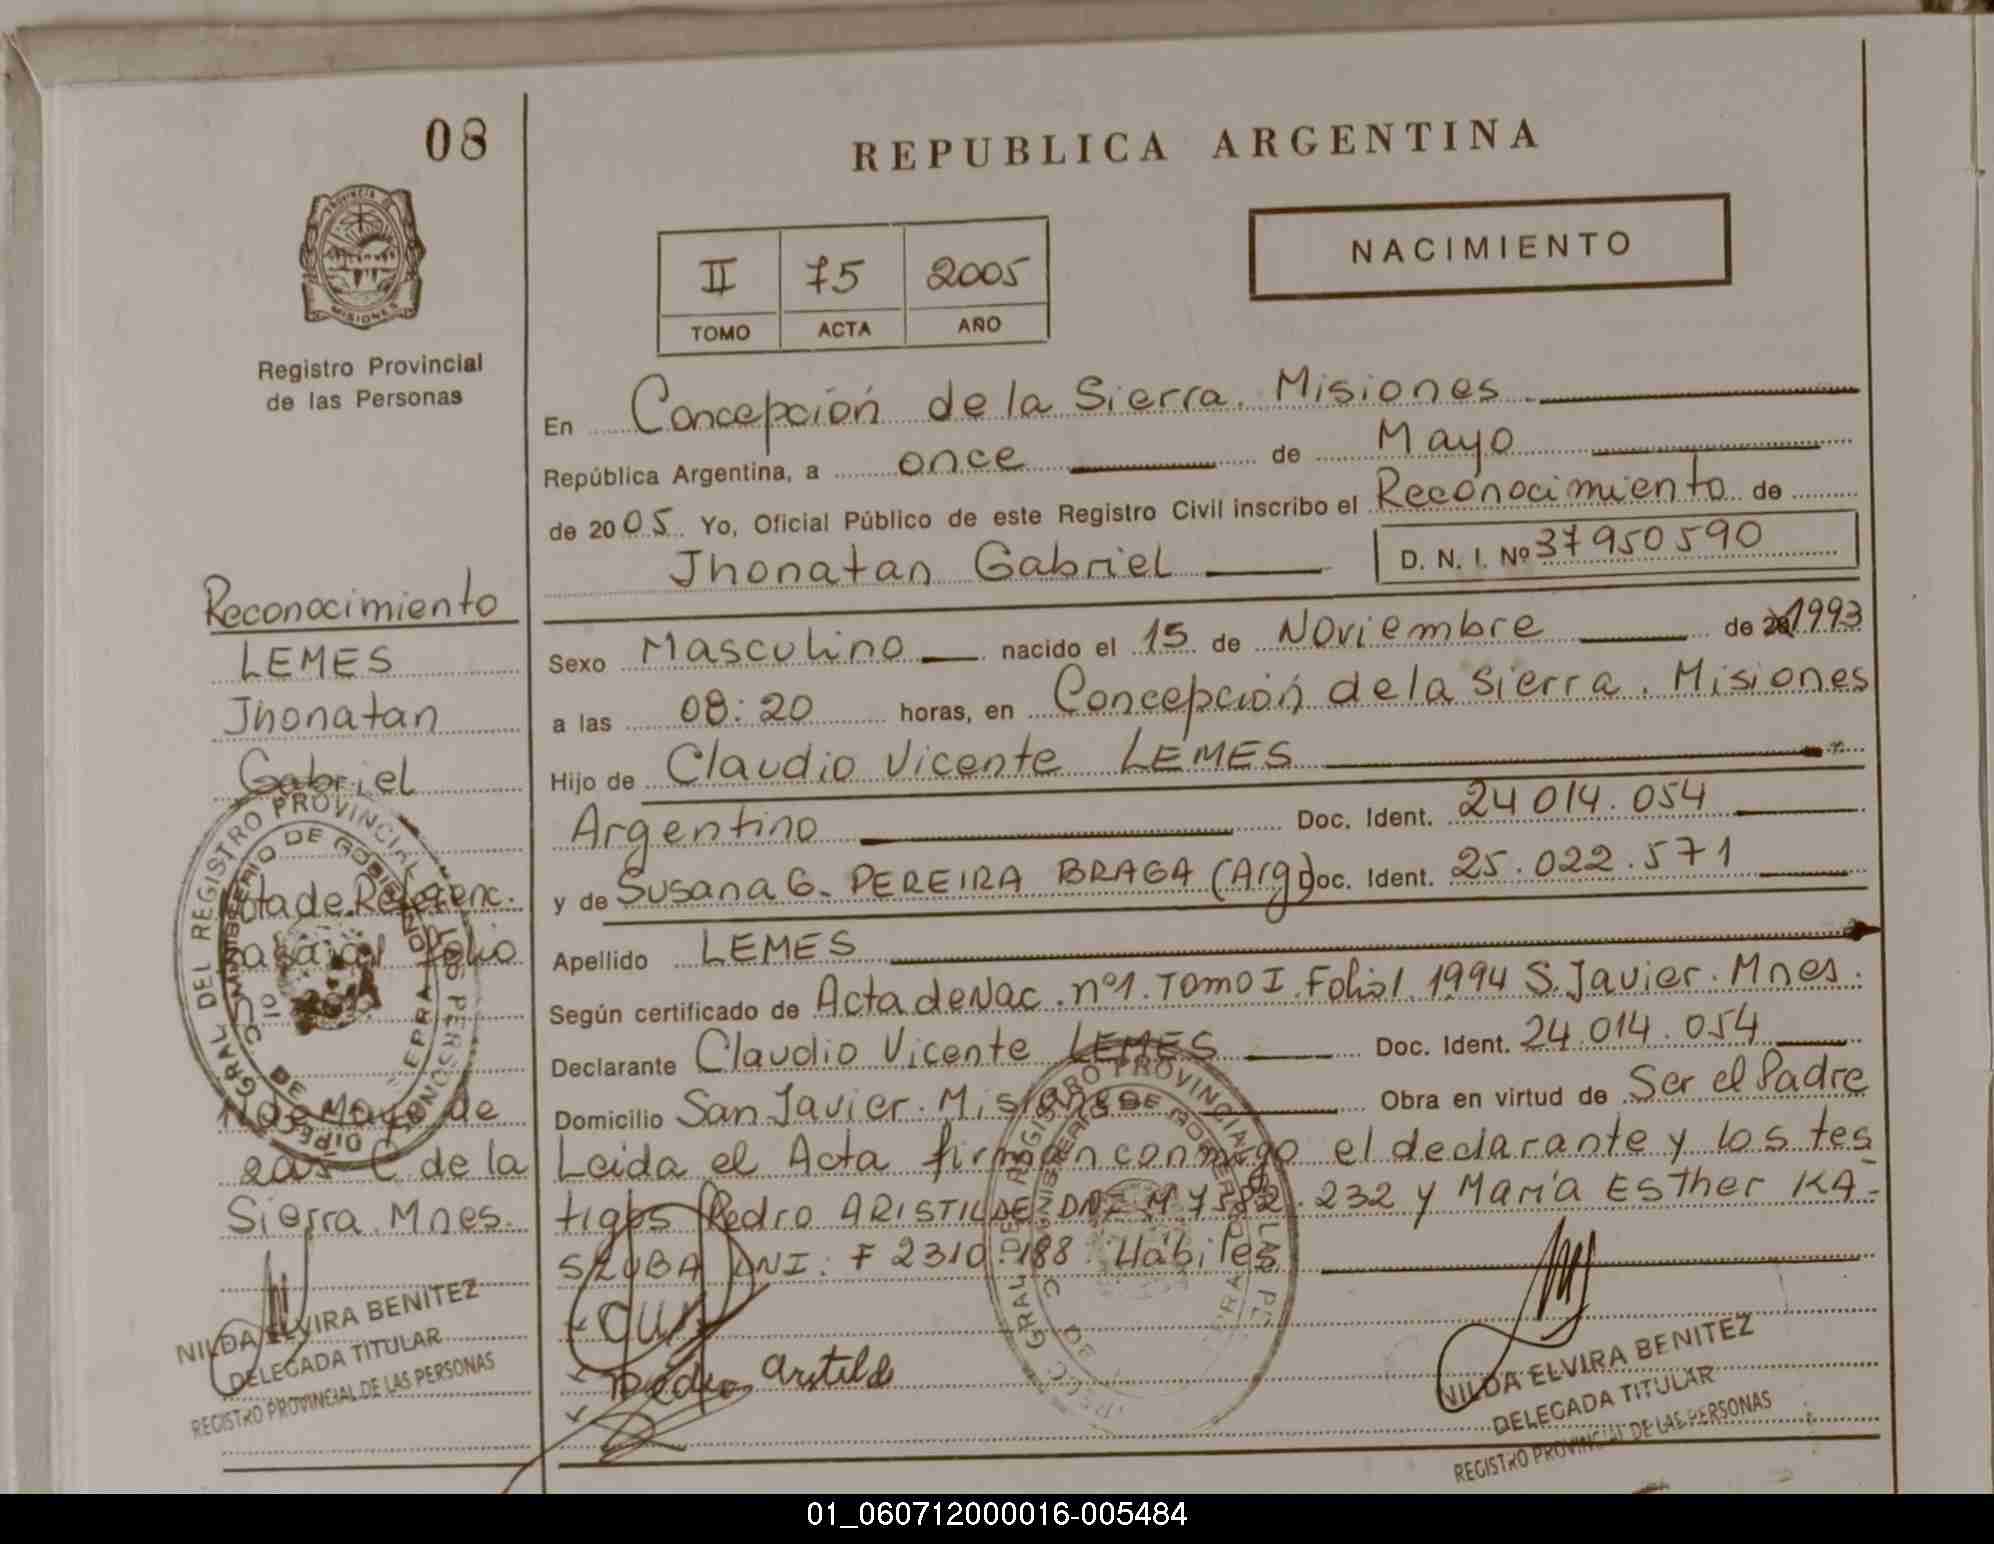 08
REPUBLICA ARGENTINA
PROVINCIA DE
MISIONES
Registro Provincial
de las Personas
II 75 2005
TOMO ACTA AÑO
NACIMIENTO
En Concepción de la Sierra. Misiones
República Argentina, a once de Mayo
de 2005. Yo, Oficial Público de este Registro Civil inscribo el Reconocimiento de
Jhonatan Gabriel D. N. I. Nº 37950590
Sexo Masculino nacido el 15 de Noviembre de 1993
a las 08:20 horas, en Concepción de la Sierra. Misiones
Hijo de Claudio Vicente LEMES
Argentino Doc. Ident. 24 014.054
y de Susana G. PEREIRA BRAGA (Arg) Doc. Ident. 25.022.571
Apellido LEMES
Según certificado de Acta de Nac. nº1. Tomo I. Folio 1. 1994 S. Javier. Mnes.
Declarante Claudio Vicente LEMES Doc. Ident. 24.014.054
Domicilio San Javier. Misiones Obra en virtud de Ser el Padre
Leida el Acta firman conmigo el declarante y los tes
tigos Pedro ARISTILDE DNI M 7582.232 y María Esther KA-
SZUBA DNI: F 2310.188. Hábiles
Pedro Aristilde
NILDA ELVIRA BENITEZ
DELEGADA TITULAR
REGISTRO PROVINCIAL DE LAS PERSONAS
Reconocimiento
LEMES
Jhonatan
Gabriel
Nota de Referenc.
pasa al folio
11 de Mayo de
2005 C. de la
Sierra. Mnes.
NILDA ELVIRA BENITEZ
DELEGADA TITULAR
REGISTRO PROVINCIAL DE LAS PERSONAS
GRAL DEL REGISTRO PROVINCIAL
MINISTERIO DE GOBIERNO
GRAL DEL REGISTRO PROVINCIAL
MINISTERIO DE GOBIERNO
01_060712000016-005484